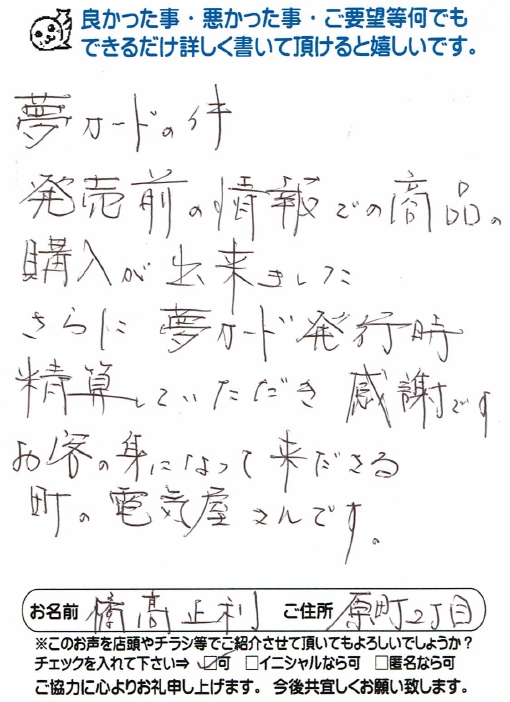 良かった事・悪かった事・ご要望等何でも
できるだけ詳しく書いて頂けると嬉しいです。
夢カードの件
発売前の情報での商品の
購入が出来ました
さらに夢カード発行時
精算していただき感謝です
お客の身になって来ださる
町の電気屋さんです。
お名前 高正利 ご住所 原町2丁目
※このお声を店頭やチラシ等でご紹介させて頂いてもよろしいでしょうか?
チェックを入れて下さい⇒ ☑可 □イニシャルなら可 □匿名なら可
ご協力に心よりお礼申し上げます。今後共宜しくお願い致します。